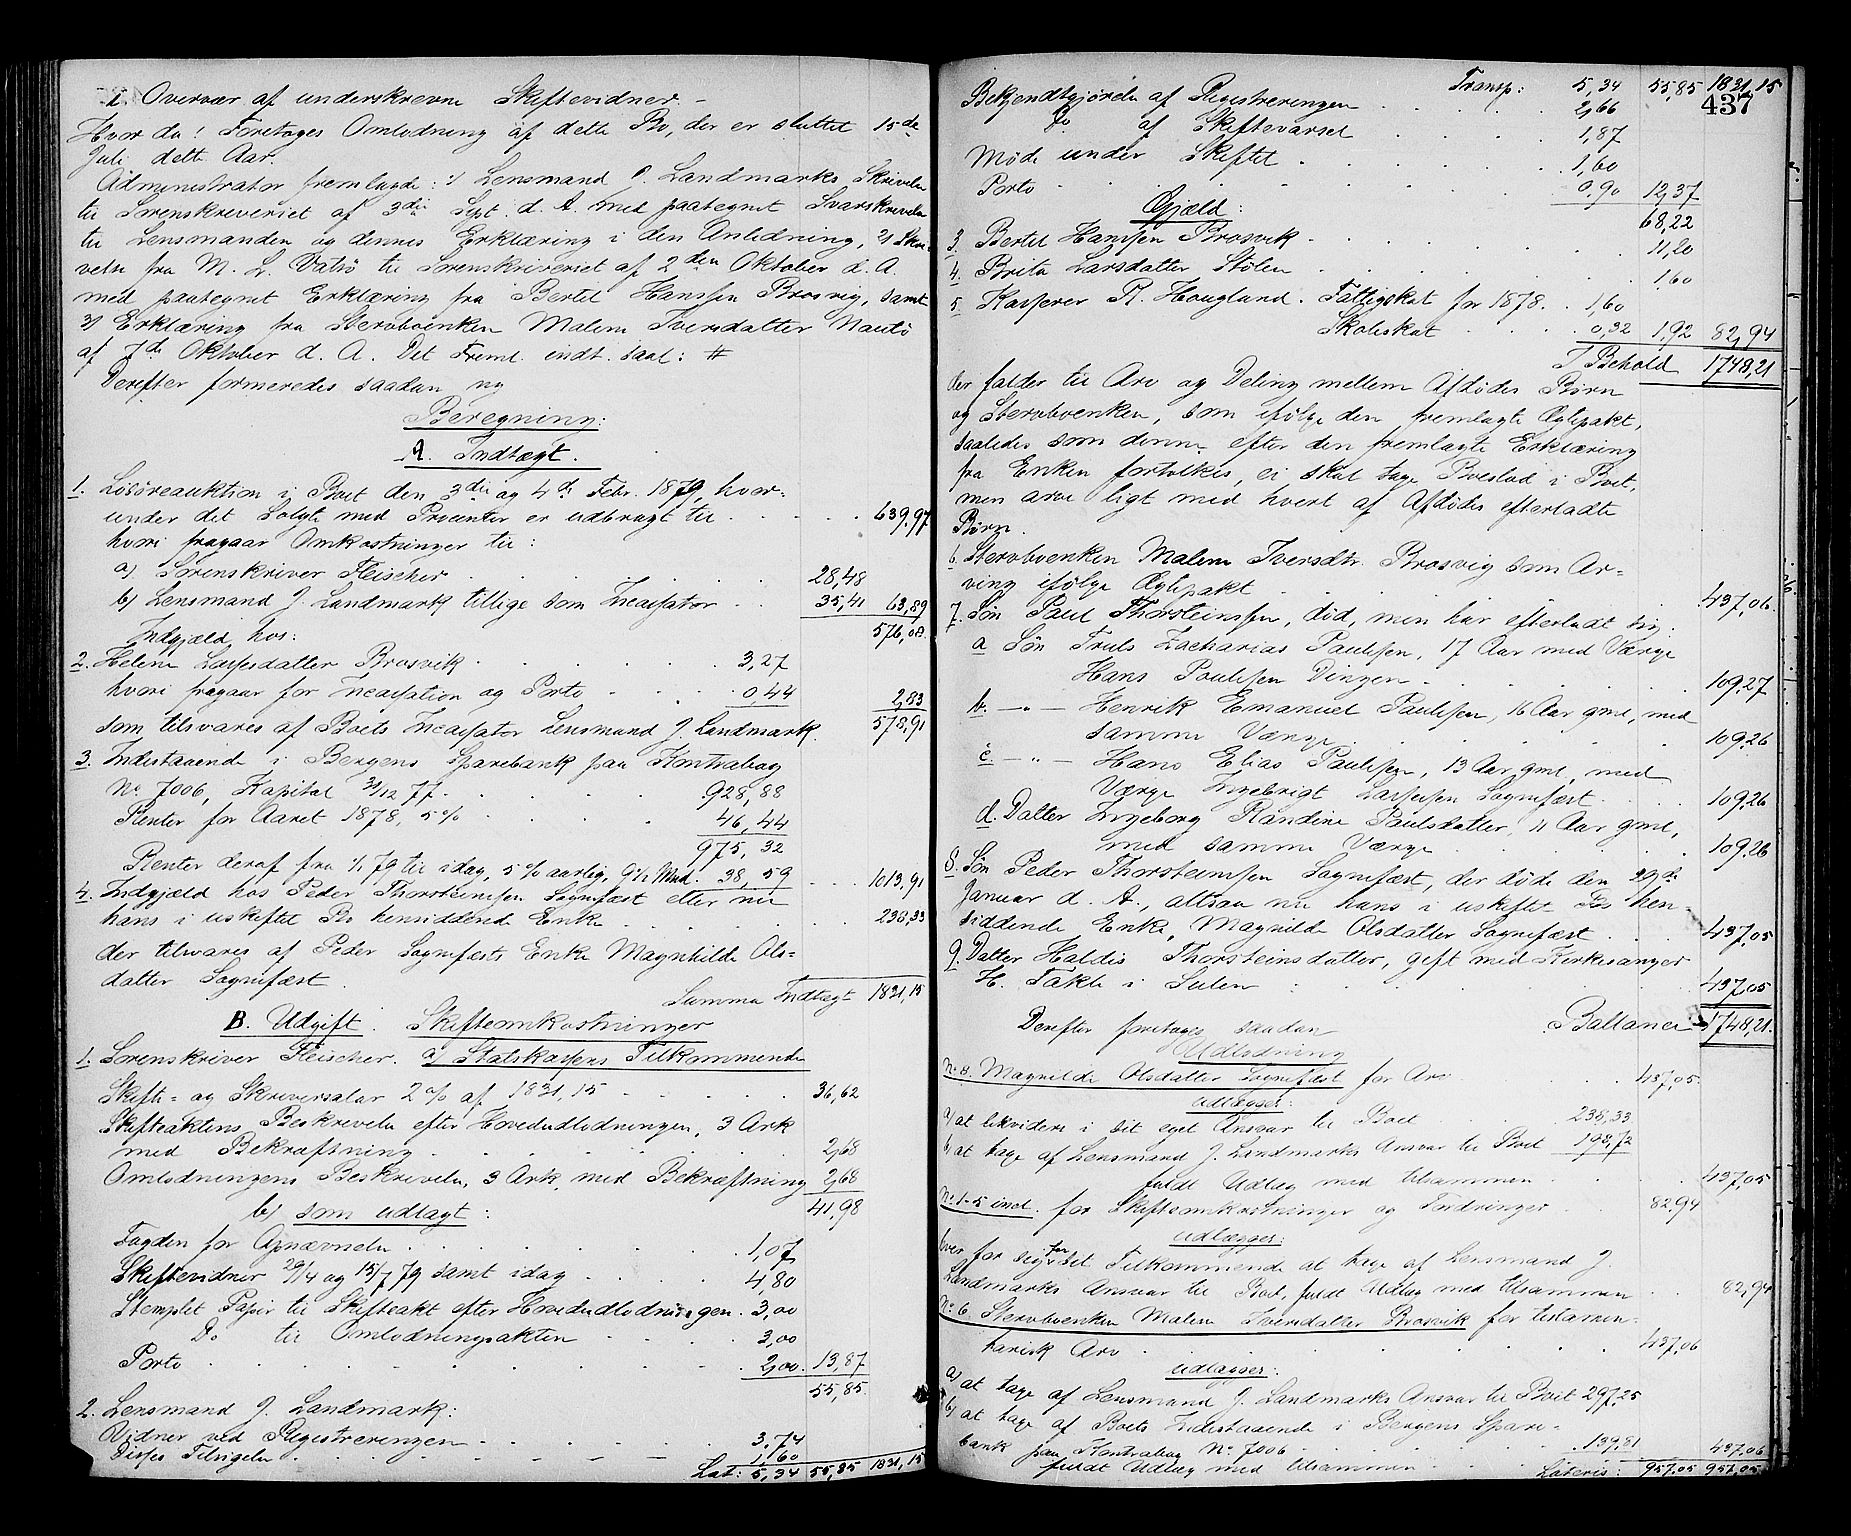 i Overvær af underskrevne Skiftevidner. –
Hvor da! Foretages Omlodning af dette Bo, der er sluttet 15de
Juli dette Aar.
Administrator fremlagde: 1) Lensmand J. Landmarks Skrivelse
til Sorenskriveriet af 3die Sept. d. A. med paategnet Svarskrivelse
til Lensmanden og dennes Erklæring i den Anledning, 2) Skri-
velse fra M. L. Vatsö til Sorenskriveriet af 2den Oktober d. A.
med paategnet Erklæring fra Bertel Hanssen Brosvig, samt
3) Erklæring fra Stervboenken Malene Iversdatter Nautö
af 7de Oktober d. A. Det Freml. indt. saal: #
Derefter formeredes saadan ny
Beregning:
A. Indtægt.
1. Lösöreauktion i Boet den 3die og 4de Febr. 1879, hvor-
under det Solgte med Procenter er udbragt til 639,97
hvori fragaar Omkostninger til:
a) Sorenskriver Fleischer 28,48
b) Lensmand J. Landmark tillige som Incassator 35,41 63,89
576,08
Indgjæld hos:
2. Helene Lassesdatter Brosvik 3,27
hvori fragaar for Incassation og Porto 0,44 2,83
som tilsvares af Boets Incassator Lensmand J. Landmark 578,91
3. Indestaaende i Bergens Sparebank paa Kontrabog
No 7006, Kapital 31/12 77 928,88
Renter for Aaret 1878, 5% 46,44
975,32
Renter deraf fra 1/1 79 til idag, 5% aarlig, 9 1/2 Mnd: 38,59 1013,91
4. Indgjæld hos Peder Thorsteinssen Sognefæst eller nu
hans i uskiftet Bo hensiddende Enke 238,33
der tilsvares af Peder Sognefæsts Enke Magnhilde Ols-
datter Sognefæst
Summa Indtægt 1831,15
B. Udgift. Skifteomkostninger
1. Sorenskriver Fleischer. a) Statskassens Tilkommende
Skifte- og Skriversalar 2% af 1831,15 36,62
Skifteaktens Beskrivelse efter Hovedudlodningen, 3 Ark
med Bekræftning 2,68
Omlodningens Beskrivelse, 3 Ark, med Bekræftning 2,68
41,98
b) som udlagt:
Fogden for Opnævnelse 1,07
Skiftevidner 29/4 og 15/7 79 samt idag 4,80
Stemplet Papir til Skifteakt efter Hovedudlodningen 3,00
Do til Omlodningsakten 3,00
Porto 2,00 13,87
55,85
2. Lensmand J. Landmark:
Vidner ved Registreringen 3,74
Disses Tilsigelse 1,60
Lat: 5,34 55,85 1831,15
437
Transp: 5,34 55,85 1831,15
Bekjendtgjörelse af Registreringen 2,66
Do af Skiftevarsel 1,87
Möde under Skiftet 1,60
Porto 0,90 12,37
68,22
Gjæld:
3. Bertel Hanssen Brosvik 11,20
4. Brita Larsdatter Stölen 1,60
5. Kasserer R. Hougland. Fattigskat for 1878 1,60
Skoleskat 0,32 1,92 82,94
I Behold 1748,21
der falder til Arv og Deling mellem Afdödes Börn
og Stervboenken, som ifölge den fremlagte Ægtepakt,
saaledes som denne efter den fremlagte Erklæring
fra Enken fortolkes, ei skal tage Boeslod i Boet,
men arve ligt med hvert af Afdödes efterladte
Börn.
6. Stervboenken Malene Iversdtr. Brosvig som Ar-
ving ifölge Ægtepakt 437,06
7. Sön Paul Thorsteinssen, död, men har efterladt sig
a Sön Truls Zacharias Paulssen, 17 Aar med Værge
Hans Poulssen Dingen 109,27
b. – " – Henrik Emanuel Paulssen, 16 Aar gml, med
samme Værge 109,26
c – " – Hans Elias Paulssen, 13 Aar gml, med
Værge Ingebrigt Lassesen Sognefæst 109,26
d. Datter Ingeborg Randine Paulsdatter, 11 Aar gml,
med samme Værge 109,26
8. Sön Peder Thorsteinssen Sognefæst, der döde den 29de
Januar d. A., altsaa nu hans i uskiftet Bo hen-
siddende Enke, Magnilde Olsdatter Sognefæst 437,05
9. Datter Haldis Thorsteinsdatter, gift med Kirkesanger
H. Takle i Sulen 437,05
Ballance 1748,21
Derefter foretages saadan
Udlodning
No 8. Magnilde Olsdatter Sognefæst for Arv 437,05
udlægges:
a) at likvidere i sit eget Ansvar til Boet 238,33
b) at tage af Lensmand J. Landmarks Ansvar til Boet 198,72
fuldt Udlæg med tilsammen 437,05
No 1-5 incl. for Skifteomkostninger og Fordringer 82,94
udlægges:
hver for sig for sit Tilkommende at tage af Lensmand J.
Landmarks Ansvar til Boet, fuldt Udlæg med tilsammen 82,94
No 6. Stervboenken Malene Iversdatter Brosvik for testamen-
tarisk Arv 437,06
udlægges:
a) at tage af Lensmand J. Landmarks Ansvar til Boet 297,25
b) at tage af Boets Indestaaende i Bergens Spare-
bank paa Kontrabog No 7006 139,81 437,06
fuldt Udlæg med tilsammen
Lateris: 957,05 957,05